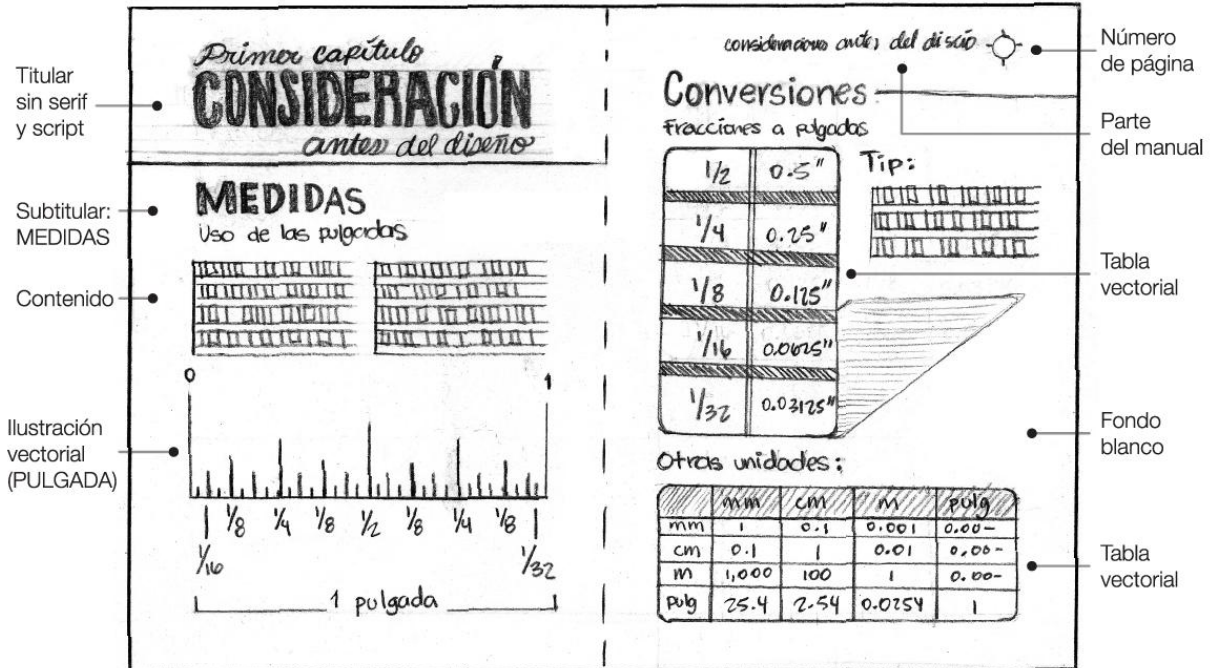 Titular
sin serif
y script
Subtitular:
MEDIDAS
Contenido
Ilustración
vectorial
(PULGADA)
Primer capítulo
CONSIDERACIÓN
antes del diseño
MEDIDAS
Uso de las pulgadas
0 1
1/8 1/4 1/8 1/2 1/8 1/4 1/8
1/16 1/32
1 pulgada
consideraciones antes del diseño
Conversiones
Fracciones a pulgadas
1/2 0.5"
1/4 0.25"
1/8 0.125"
1/16 0.0625"
1/32 0.03125"
Tip:
Otras unidades:
mm cm m pulg
mm 1 0.1 0.001 0.00-
cm 0.1 1 0.01 0.00-
m 1,000 100 1 0.00-
pulg 25.4 2.54 0.0254 1
Número
de página
Parte
del manual
Tabla
vectorial
Fondo
blanco
Tabla
vectorial